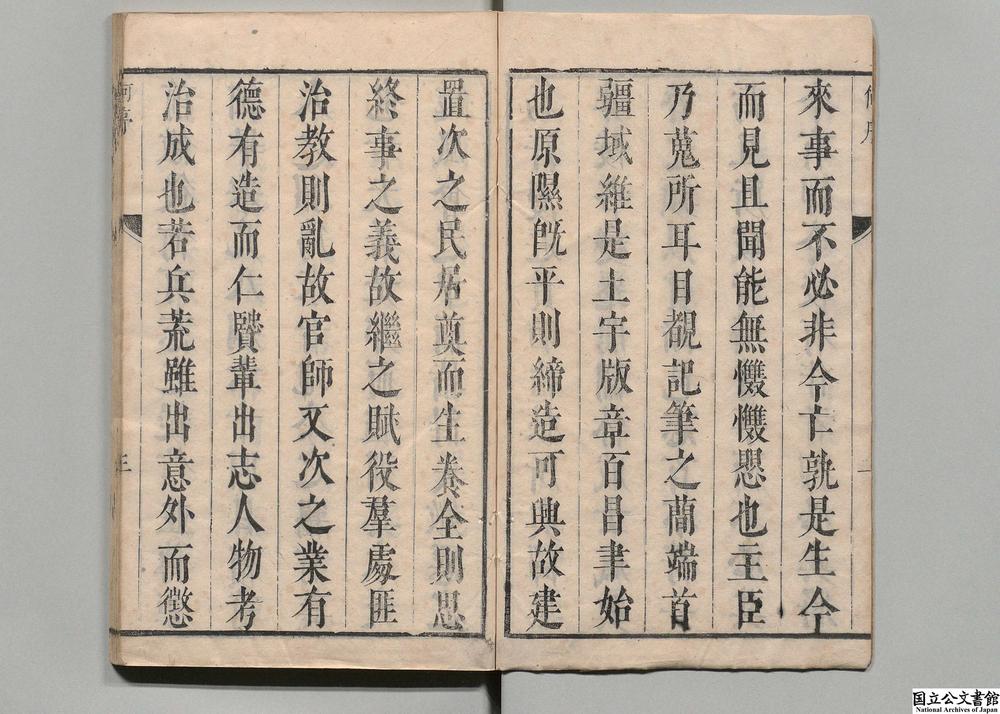 來事而不必非今亡孰是生今
而見且聞能無慨慨愳也主臣
乃蒐所耳目覩記筆之蕳端首
疆域維是土宇版章百昌聿始
也原隰旣平則締造可興故建
置次之民居奠而生養全則思
終事之義故繼之賦役羣處匪
治教則亂故官師又次之業有
德有造而仁賢輩出志人物考
治成也若兵荒雖出意外而懲
三
国立公文書館
National Archives of Japan